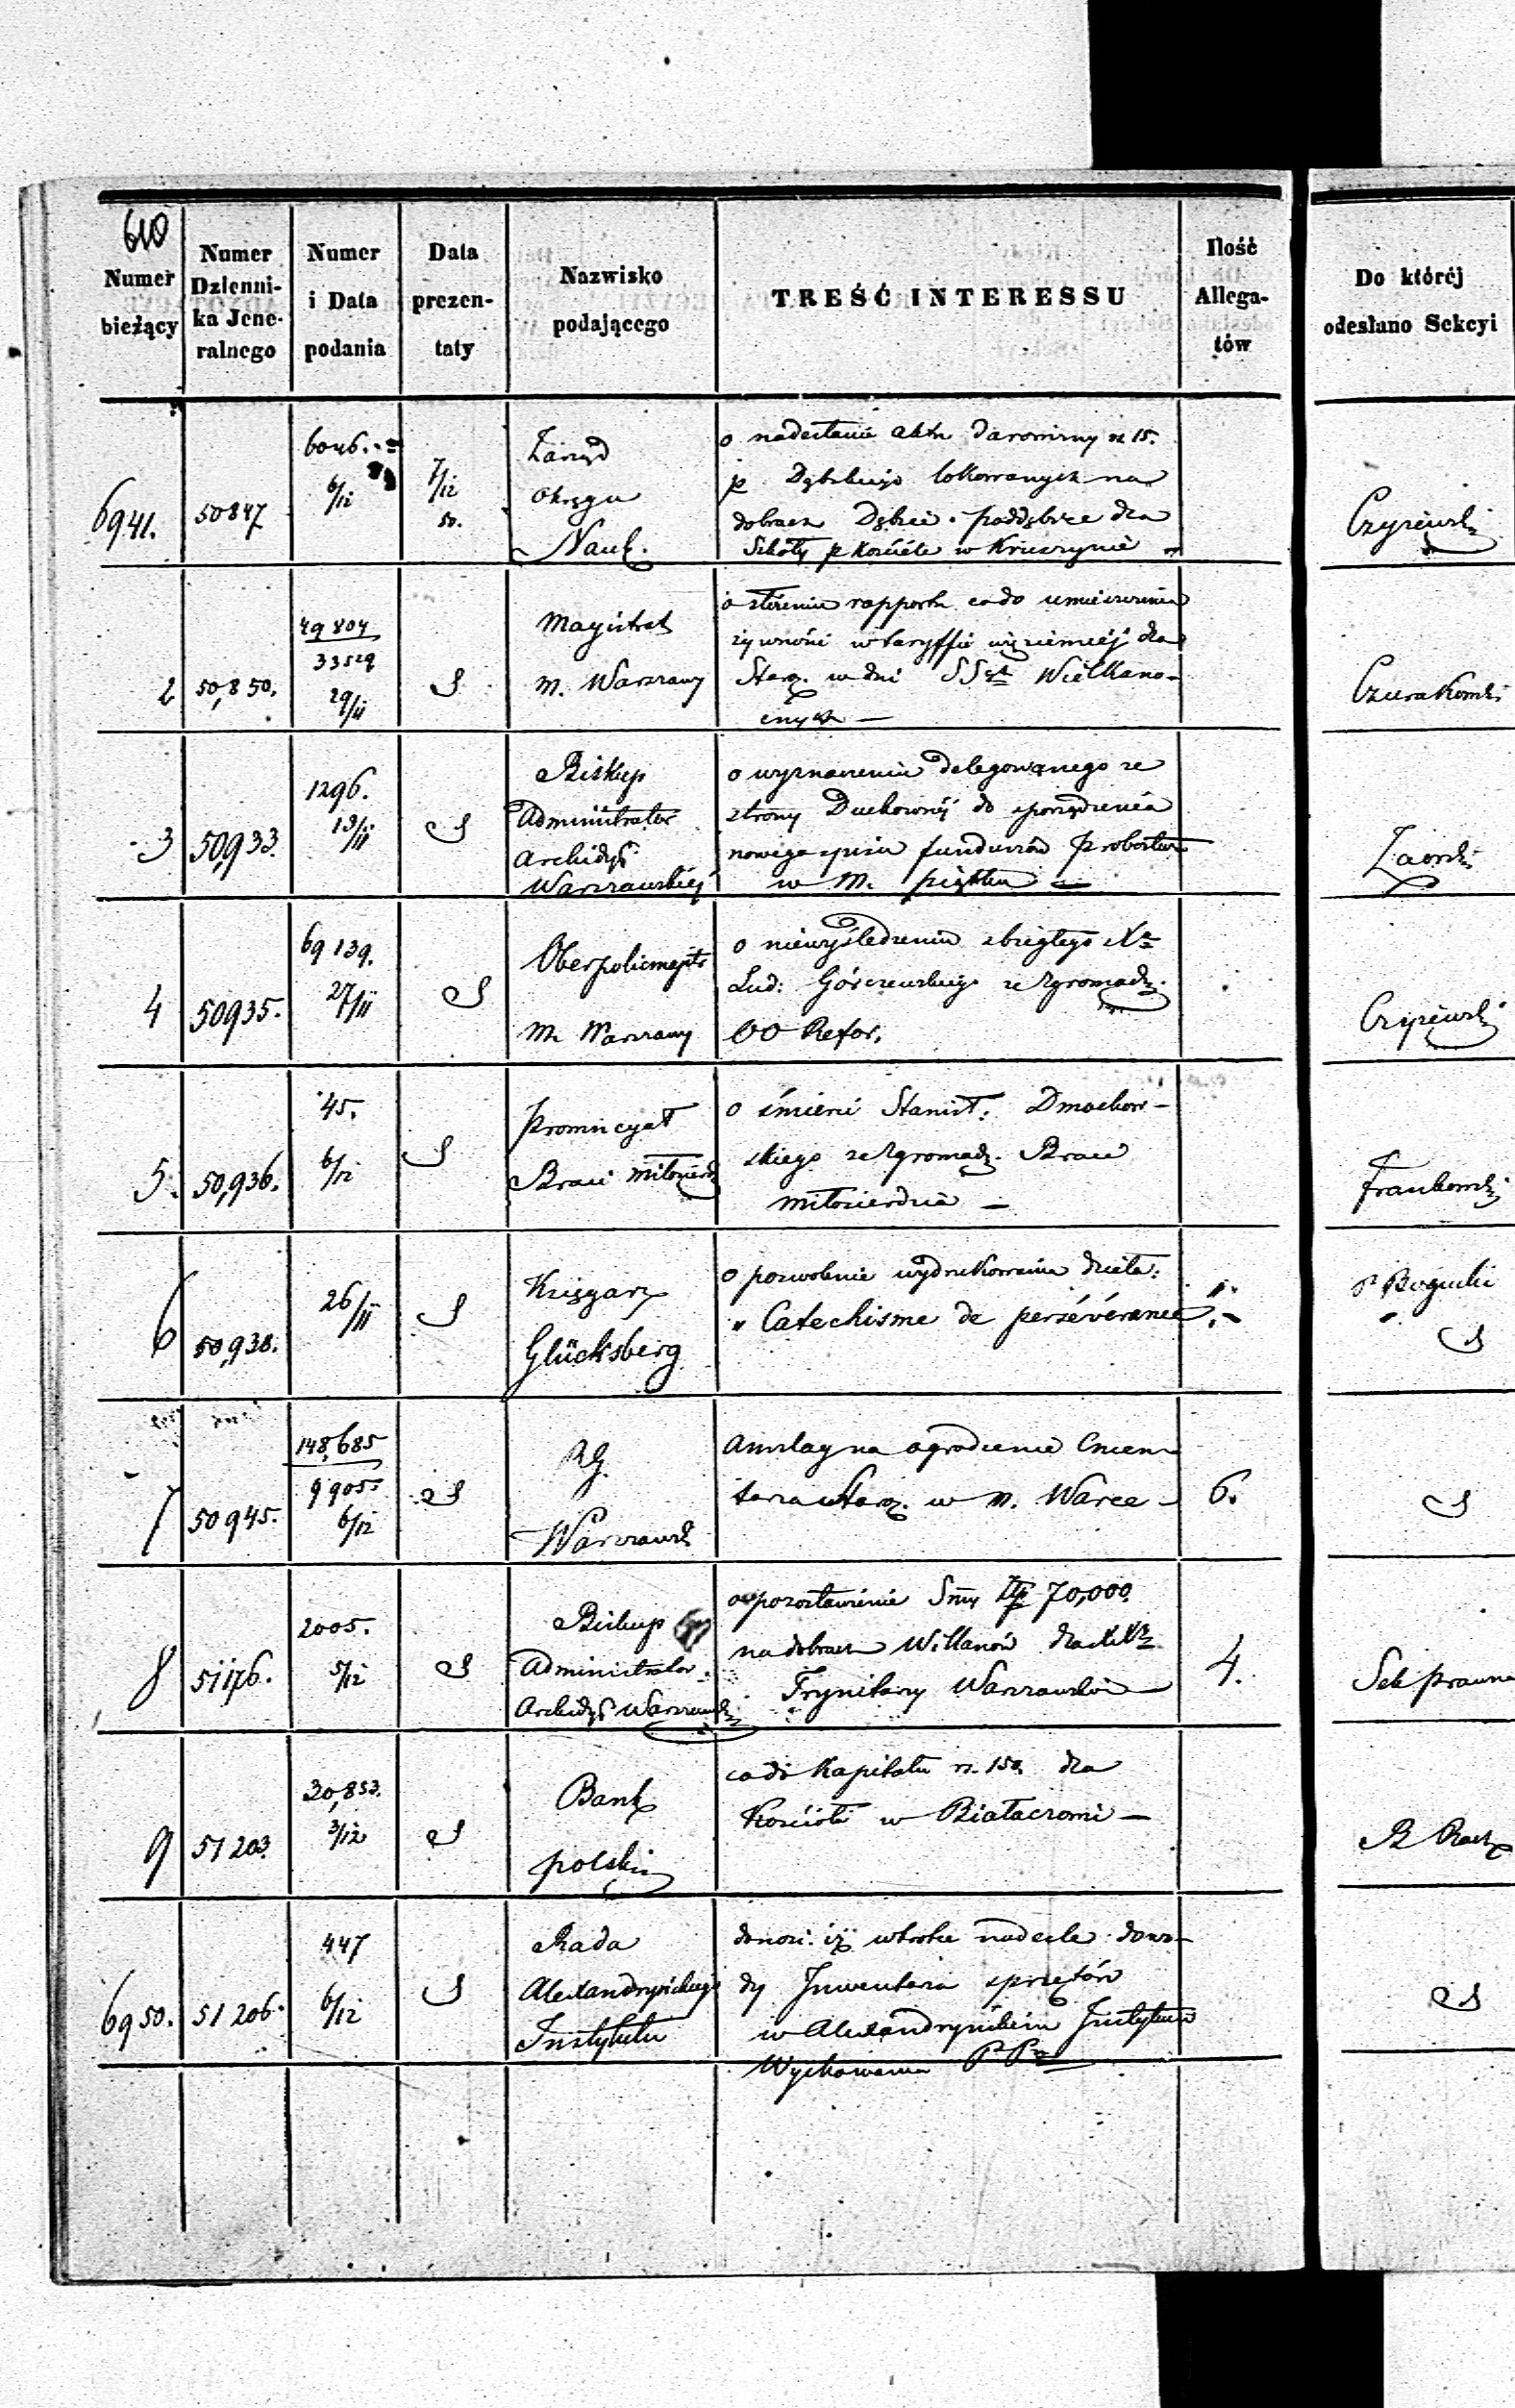 610
Numer
bieżący
Numer
Dzienni-
ka Jene-
ralnego
Numer
i Data
podania
Data
prezen-
taty
Nazwisko
podającego
TREŚĆ INTERESSU
Ilość
Allega-
tów
Do któréj
odesłano Sekcyi
6941.
50847
6046.
6/12
7/12
50.
Zarząd
Okręgu
Nauk.
o nadesłanie aktu darowizny rs 15.
p Dąbskiego lokowanych na
dobrach Dąbie. poddębice dla
Szkoły p Kościele w
Czyżewski
2
50,850.
49804
33529
29/11
S
Magistrat
m. Warszawy
o złożenie rapportu co do umieszczenia
żywności w taryffie więziennéj dla
Starz. w dni SSych Wielkano-
cnych —
Czurakowski
3
50,933.
1296.
13/11
S
Biskup
Administrator
Archidyi
Warszawskiéj
o wyznaczeniu delegowanego ze
strony Duchownéj do sporządzenia
nowego spisu funduszów Probostwa
w M. Piątku —
Zaorski
4
50935.
69139.
27/11
S
Oberpolicmajstr
m. Warszawy
o niewyśledzeniu zbiegłego Xa
Lud: Górczewskiego ze Zgromadz.
OO Refor.
Czyżewski
5.
50,936.
45.
6/12
S
Prowincyał
Braci Miłosierdz
o śmierci Stanisł. Dmochow-
skiego ze Zgromadz. Braci
Miłosierdzia —
Frankowski
6
50,938.
26/11
S
Księgarz
Glücksberg
o pozwolenie wydrukowania dzieła:
„ Catechisme de persévérance
1.
P Bogucki
S
7
50945.
148,685
9905
6/12
S
RG.
Warszawsk
Anszlag na ogrodzenie Cmen-
tarza Starz. w m. Warce —
6.
S
8
51176.
2005.
5/12
S
Biskup
Administrator
Archidyi Warszawski
o pozostawienie Smy Złp 70,000
na dobrach Willanów dla XXy
Trynitarzy Warszawskich —
4.
Sek prawna
9
51203.
30,853.
3/12
S
Bank
polski
co do Kapitału rs. 150. dla
Kościoła w —
6950.
51206.
447
6/12
S
Rada
Alexandryńskiego
Instytutu
donosi iż wkrótce nadeśle dowo-
dy Inwentarza sprzętów
w Alexandryńskim Instytucie
Wychowania PPn
S